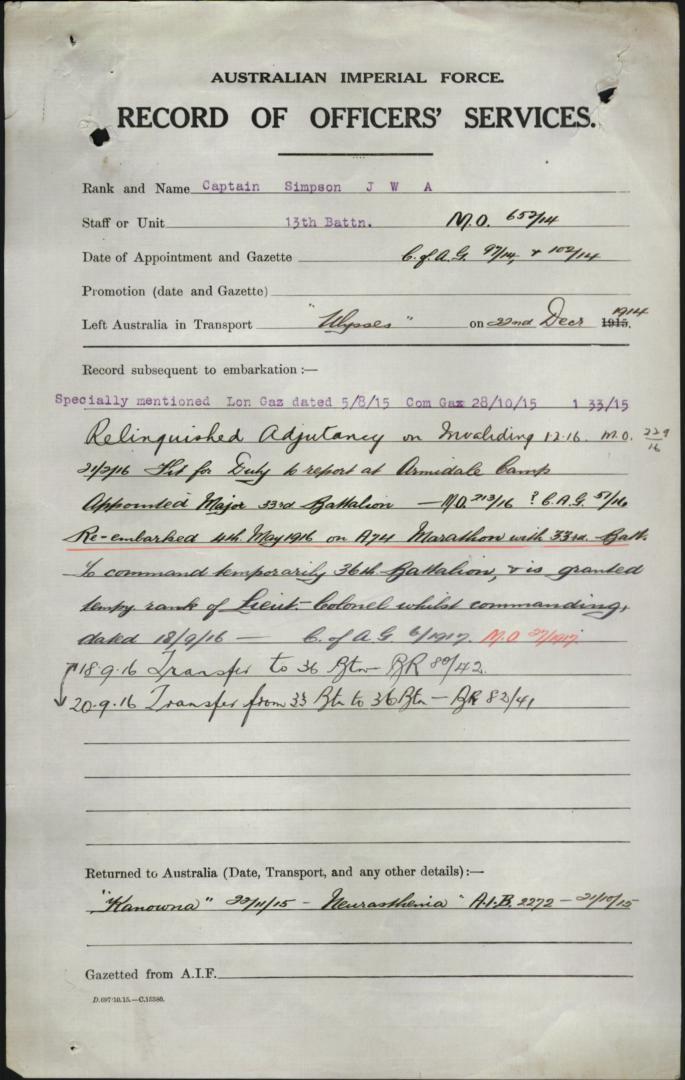 AUSTRALIAN IMPERIAL FORCE.
RECORD OF OFFICERS' SERVICES.
Rank and Name Captain Simpson J W A
Staff or Unit 13th Battn. M.O. 652/14
Date of Appointment and Gazette C. of A.G. 97/14, & 102/14
Promotion (date and Gazette)
Left Australia in Transport "Ulysses" on 22nd Decr 1915. 1914
Record subsequent to embarkation :—
Specially mentioned Lon Gaz dated 5/8/15 Com Gaz 28/10/15 1 33/15
Relinquished Adjutancy on Invaliding 12.16. M.O. 229/16
21/2/16 Fit for Duty to report at Armidale Camp
Appointed Major 33rd Battalion — M.O. 213/16 ? C.A.G. 57/16
Re-embarked 4th May 1916 on A74 Marathon with 33rd. Batt.
To command temporarily 36th Battalion, & is granted
tempy rank of Lieut-Colonel whilst commanding,
dated 18/9/16 — C. of A G 6/1917. M.O 27/1917
18.9.16 Transfer to 36 Btn — BR 80/42.
20.9.16 Transfer from 33 Btn to 36 Btn — BR 82/41
Returned to Australia (Date, Transport, and any other details) :—
"Kanowna" 23/11/15 - Neurasthenia A.I.B. 2272 — 21/10/15
Gazetted from A.I.F.
D.697/10.15.—C.15380.